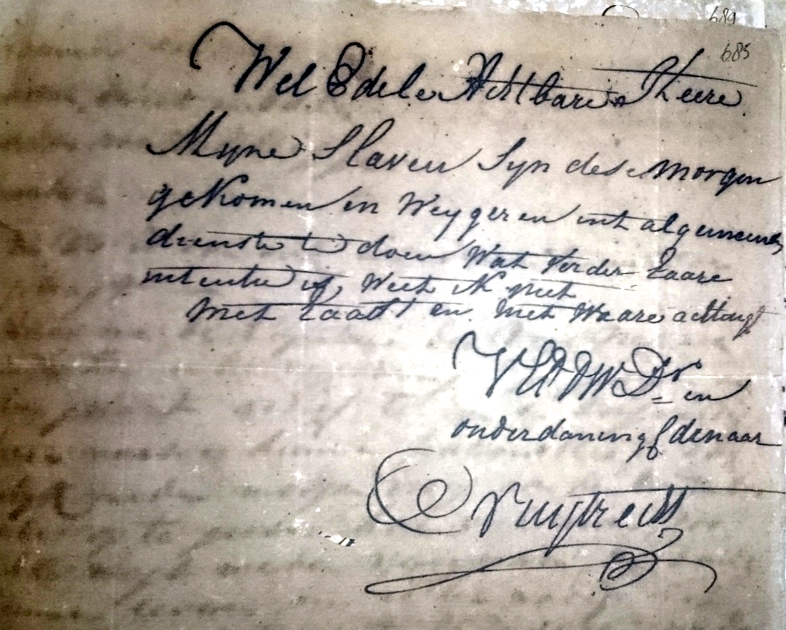 684
685
Wel Edele Achtbare Heere
Myne Slaven Syn dese morgen
gekomen en Weygeren int algemeene
dienste te doen Wat Verder haare
intentie is, Weet ik niet
Met haast en met Waare achting
en
onderdanings denaar